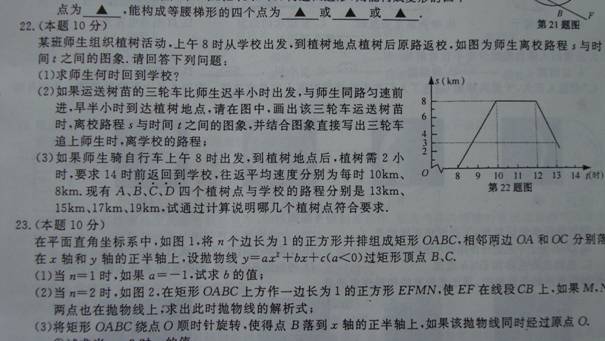 点为 ▲ ,能构成等腰梯形的四个点为 ▲ 或 ▲ 或 ▲ .
B F
第21题图
22.(本题10分)
某班师生组织植树活动,上午8时从学校出发,到植树地点植树后原路返校,如图为师生离校路程s与时
间t之间的图象.请回答下列问题:
(1)求师生何时回到学校?
(2)如果运送树苗的三轮车比师生迟半小时出发,与师生同路匀速前
进,早半小时到达植树地点,请在图中,画出该三轮车运送树苗
时,离校路程s与时间t之间的图象,并结合图象直接写出三轮车
追上师生时,离学校的路程;
(3)如果师生骑自行车上午8时出发,到植树地点后,植树需2小
时,要求14时前返回到学校,往返平均速度分别为每时10km、
8km.现有A、B、C、D四个植树点与学校的路程分别是13km、
15km、17km、19km,试通过计算说明哪几个植树点符合要求.
s(km)
8
6
4
3
2
O 8 9 10 11 12 13 14 t(时)
第22题图
23.(本题10分)
在平面直角坐标系中,如图1,将n个边长为1的正方形并排组成矩形OABC,相邻两边OA和OC分别落
在x轴和y轴的正半轴上,设抛物线y=ax²+bx+c(a<0)过矩形顶点B、C.
(1)当n=1时,如果a=-1,试求b的值;
(2)当n=2时,如图2,在矩形OABC上方作一边长为1的正方形EFMN,使EF在线段CB上,如果M、N
两点也在抛物线上,求出此时抛物线的解析式;
(3)将矩形OABC绕点O顺时针旋转,使得点B落到x轴的正半轴上,如果该抛物线同时经过原点O.